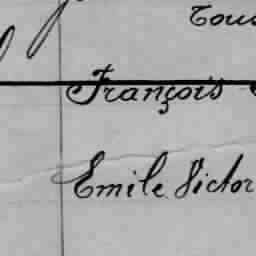 Tous
François
Emile Victor